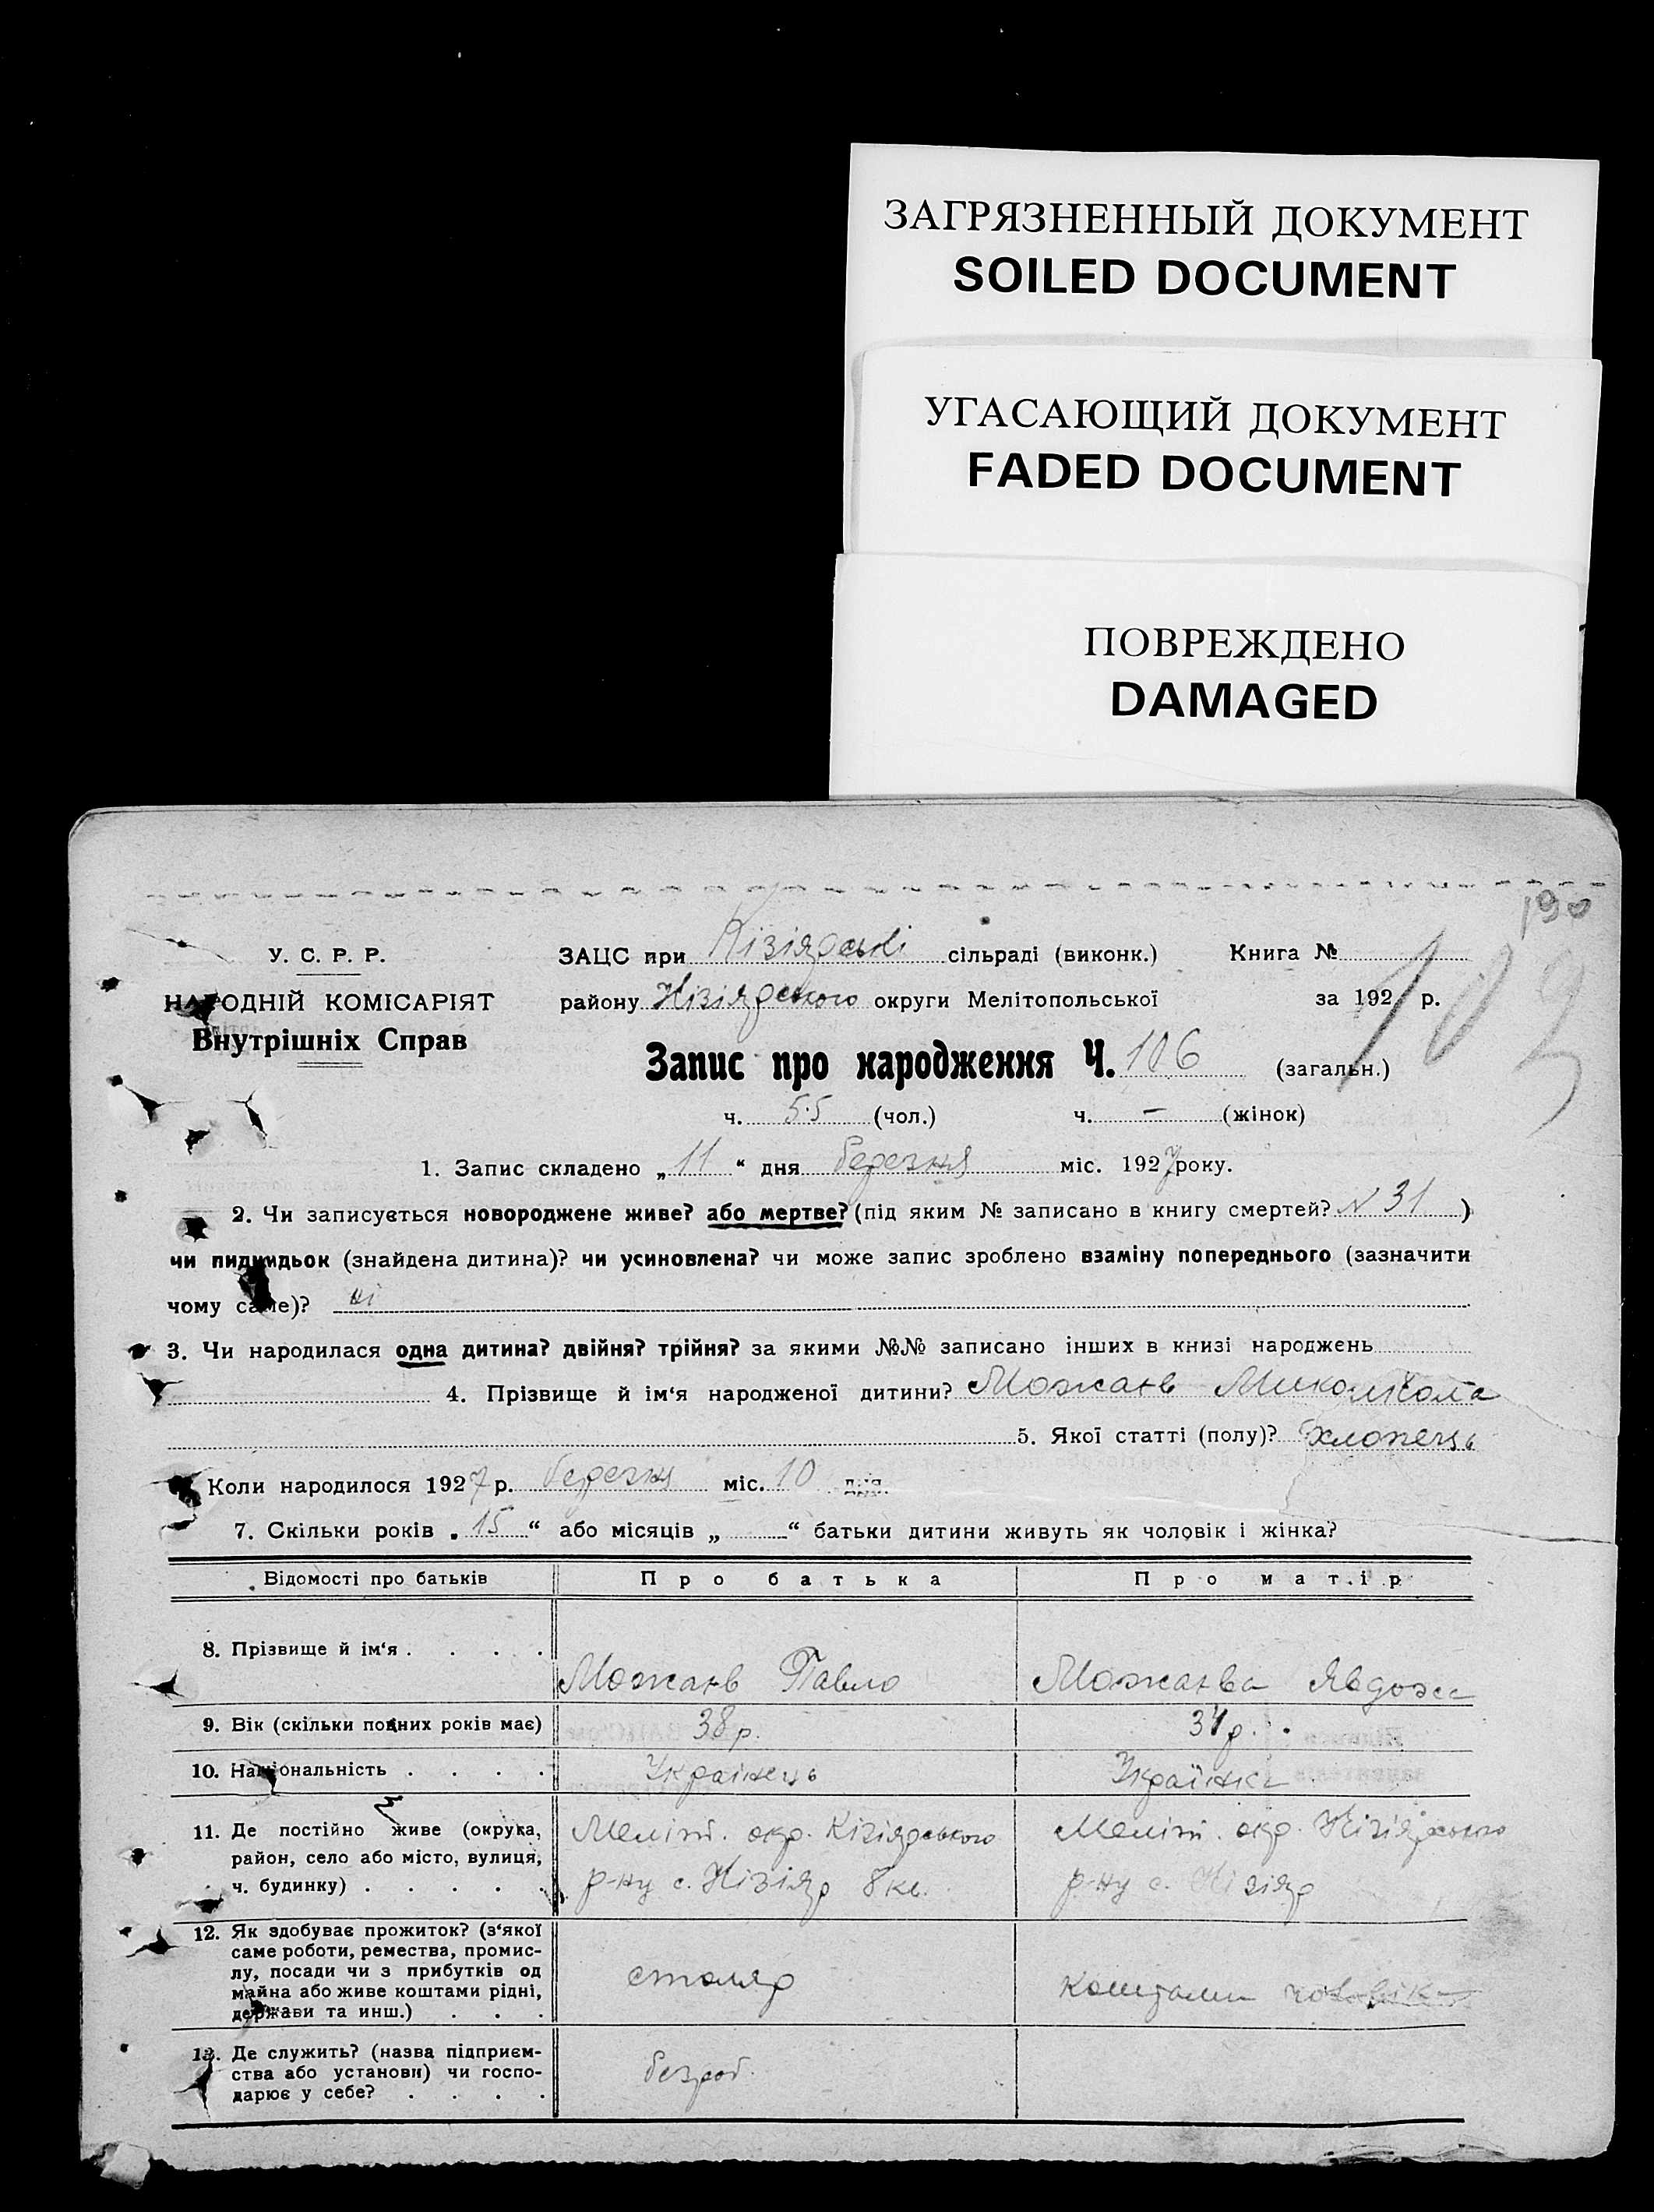 ЗАГРЯЗНЕННЫЙ ДОКУМЕНТ
SOILED DOCUMENT
УГАСАЮЩИЙ ДОКУМЕНТ
FADED DOCUMENT
ПОВРЕЖДЕНО
DAMAGED
190
103
У. С. Р. Р.
НАРОДНІЙ КОМІСАРІЯТ
Внутрішніх Справ
ЗАЦС при Кізіярські сільраді (виконк.) Книга №
району Кізіярського округи Мелітопольської за 192 р.
Запис про народження Ч. 106 (загальн.)
ч. 55 (чол.) ч. — (жінок)
1. Запис складено „11“ дня березня міс. 1927 року.
2. Чи записується новороджене живе? або мертве? (під яким № записано в книгу смертей? N 31 )
чи пидкидьок (знайдена дитина)? чи усиновлена? чи може запис зроблено взаміну попереднього (зазначити
чому саме)? ні
3. Чи народилася одна дитина? двійня? трійня? за якими №№ записано інших в книзі народжень
4. Прізвище й ім‘я народженої дитини? Можаєв
5. Якої статті (полу)? хлопець
Коли народилося 1927 р. березня міс. 10 дня.
7. Скільки років „15“ або місяців „ “ батьки дитини живуть як чоловік і жінка?
Відомості про батьків Про батька Про матір
8. Прізвище й ім‘я . . . . Можаєв Павло Можаєва Явдоха
9. Вік (скільки повних років має) 38 р. 34 р.
10. Національність . . . . Українець Українка
11. Де постійно живе (округа, район, село або місто, вулиця, ч. будинку) . . . . . Меліт. окр. Кізіярського
р-ну с. Кізіяр 8 кв. Меліт. окр. Кізіярського
р-ну с. Кізіяр
12. Як здобуває прожиток? (з‘якої
саме роботи, ремества, промис-
лу, посади чи з прибутків од
майна або живе коштами рідні,
держави та инш.) . . . столяр коштами чоловіка
13. Де служить? (назва підприєм-
ства або установи) чи госпо-
дарює у себе? . . . . безроб.